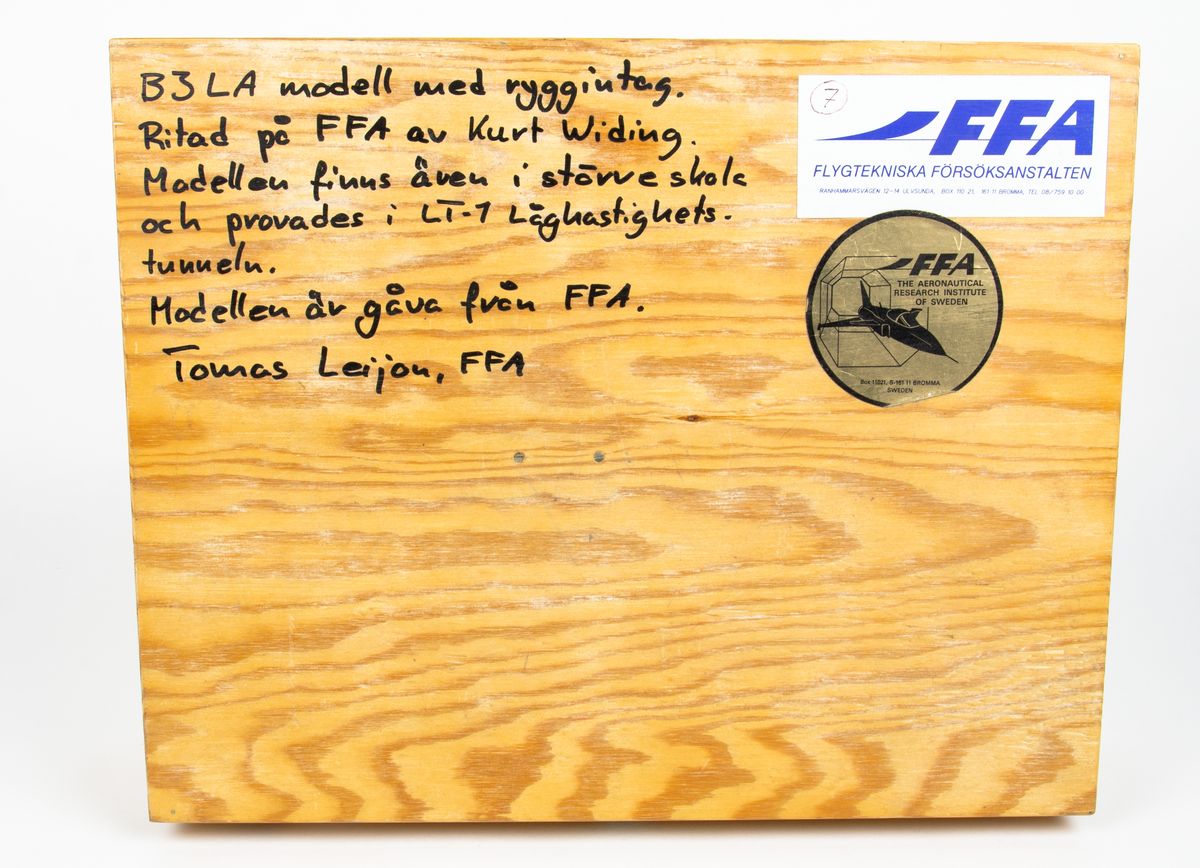 B3LA modell med ryggintag.
Ritad på FFA av Kurt Widing.
Modellen finns även i större skala
och provades i LT-1 Låghastighets-
tunneln.
Modellen är gåva från FFA.
Tomas Leijon, FFA
7
FFA
FLYGTEKNISKA FÖRSÖKSANSTALTEN
RANHAMMARSVÄGEN 12-14 ULVSUNDA, BOX 110 21, 161 11 BROMMA, TEL 08/759 10 00
FFA
THE AERONAUTICAL
RESEARCH INSTITUTE
OF SWEDEN
Box 11021, S-161 11 BROMMA
SWEDEN